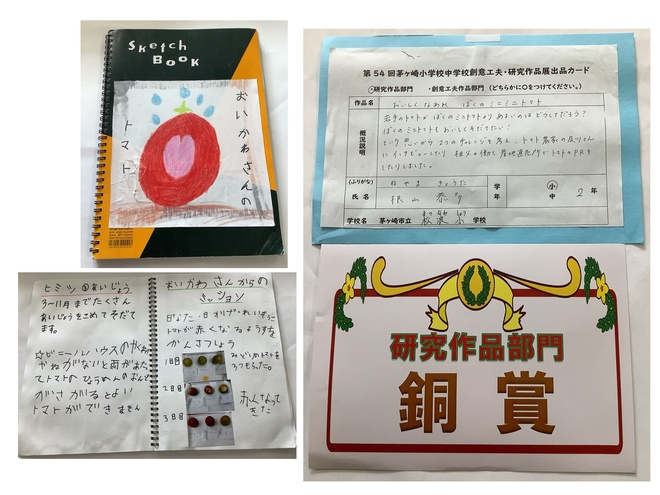 Sketch
Book
おいかわさんの
トマト
ヒミツ①あいじょう
3~11月までたくさん
あいじょうをこめてそだて
ます。
☆ビニールハウスのやくわり
やねがないと雨があたっ
てトマトのひょうめんのおんど
がさがるとよい
トマトができません
おいかわさんからの
ミッション
日なた・日かげ・れいぞうこ
トマトが赤くなるようすを
かんさつしよう
1日目
みどりのトマトを
3つもらった。
2日目
赤くなって
きた
3日目
第54回茅ヶ崎小学校中学校創意工夫・研究作品展出品カード
研究作品部門 ・創意工夫作品部門(どちらかに○をつけてください。)
作品名
おいしくなあれ ぼくのミニミニトマト
概況説明
岩手のトマトがぼくのミニトマトよりあまいのはどうしてだろう?
ぼくのミニトマトもおいしくそだてたい!
という思いから2つのチャレンジを考え、トマト農家の及川さん
にインタビューしたり 祖父の働く産地直売所でトマトのPRを
したりしました。
(ふりがな)
ねやま きょうた
根山 恭
学年
小
中
2
年
学校名
茅ヶ崎市立
松浪小
学校
研究作品部門
銅賞